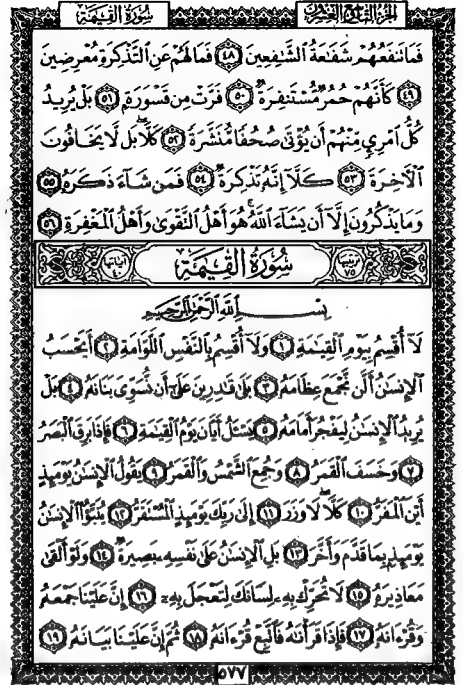 الجزء التاسع والعشرون
سُورَةُ القِيَٰمَةِ
فَمَا تَنفَعُهُمْ شَفَٰعَةُ ٱلشَّٰفِعِينَ ٤٨ فَمَا لَهُمْ عَنِ ٱلتَّذْكِرَةِ مُعْرِضِينَ
٤٩ كَأَنَّهُمْ حُمُرٌ مُّسْتَنفِرَةٌ ٥٠ فَرَّتْ مِن قَسْوَرَةٍۭ ٥١ بَلْ يُرِيدُ
كُلُّ ٱمْرِئٍ مِّنْهُمْ أَن يُؤْتَىٰ صُحُفًا مُّنَشَّرَةً ٥٢ كَلَّا ۖ بَل لَّا يَخَافُونَ
ٱلْأٓخِرَةَ ٥٣ كَلَّآ إِنَّهُۥ تَذْكِرَةٌ ٥٤ فَمَن شَآءَ ذَكَرَهُۥ ٥٥
وَمَا يَذْكُرُونَ إِلَّآ أَن يَشَآءَ ٱللَّهُ ۚ هُوَ أَهْلُ ٱلتَّقْوَىٰ وَأَهْلُ ٱلْمَغْفِرَةِ ٥٦
ترتيبها ٧٥ سُورَةُ القِيَٰمَةِ آياتها ٤٠
بِسْمِ ٱللَّهِ ٱلرَّحْمَٰنِ ٱلرَّحِيمِ
لَآ أُقْسِمُ بِيَوْمِ ٱلْقِيَٰمَةِ ١ وَلَآ أُقْسِمُ بِٱلنَّفْسِ ٱللَّوَّامَةِ ٢ أَيَحْسَبُ
ٱلْإِنسَٰنُ أَلَّن نَّجْمَعَ عِظَامَهُۥ ٣ بَلَىٰ قَٰدِرِينَ عَلَىٰٓ أَن نُّسَوِّىَ بَنَانَهُۥ ٤ بَلْ
يُرِيدُ ٱلْإِنسَٰنُ لِيَفْجُرَ أَمَامَهُۥ ٥ يَسْـَٔلُ أَيَّانَ يَوْمُ ٱلْقِيَٰمَةِ ٦ فَإِذَا بَرِقَ ٱلْبَصَرُ
٧ وَخَسَفَ ٱلْقَمَرُ ٨ وَجُمِعَ ٱلشَّمْسُ وَٱلْقَمَرُ ٩ يَقُولُ ٱلْإِنسَٰنُ يَوْمَئِذٍ
أَيْنَ ٱلْمَفَرُّ ١٠ كَلَّا لَا وَزَرَ ١١ إِلَىٰ رَبِّكَ يَوْمَئِذٍ ٱلْمُسْتَقَرُّ ١٢ يُنَبَّؤُا۟ ٱلْإِنسَٰنُ
يَوْمَئِذٍۭ بِمَا قَدَّمَ وَأَخَّرَ ١٣ بَلِ ٱلْإِنسَٰنُ عَلَىٰ نَفْسِهِۦ بَصِيرَةٌ ١٤ وَلَوْ أَلْقَىٰ
مَعَاذِيرَهُۥ ١٥ لَا تُحَرِّكْ بِهِۦ لِسَانَكَ لِتَعْجَلَ بِهِۦٓ ١٦ إِنَّ عَلَيْنَا جَمْعَهُۥ
وَقُرْءَانَهُۥ ١٧ فَإِذَا قَرَأْنَٰهُ فَٱتَّبِعْ قُرْءَانَهُۥ ١٨ ثُمَّ إِنَّ عَلَيْنَا بَيَانَهُۥ ١٩
٥٧٧